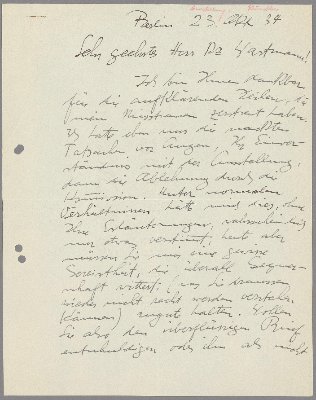 Berlin 23. Okt 34
Sehr geehrter Herr Dr Wartmann!
Ich bin Ihnen dankbar
für die aufklärenden Zeilen, die
mein Misstrauen zerstreut haben.
Ich hatte eben nur die nackten
Tatsachen vor Augen, Ihr Einver-
ständnis mit der Ausstellung,
dann die Ablehnung durch die
Kommission. Unter normalen
Verhältnissen hätte mich dies, ohne
Ihre Erläuterungen, wahrscheinlich
nur etwas verstimmt, heute aber
müssen Sie uns eine gewisse
Gereiztheit, die überall Gegner-
schaft wittert, (was die draussen
wieder nicht recht werden verstehen
können) zugute halten. Wollen
Sie also den überflüssigen Brief
entschuldigen oder ihn als nicht